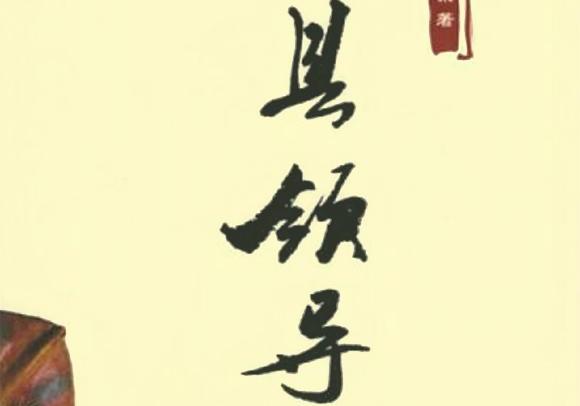 县领导
著